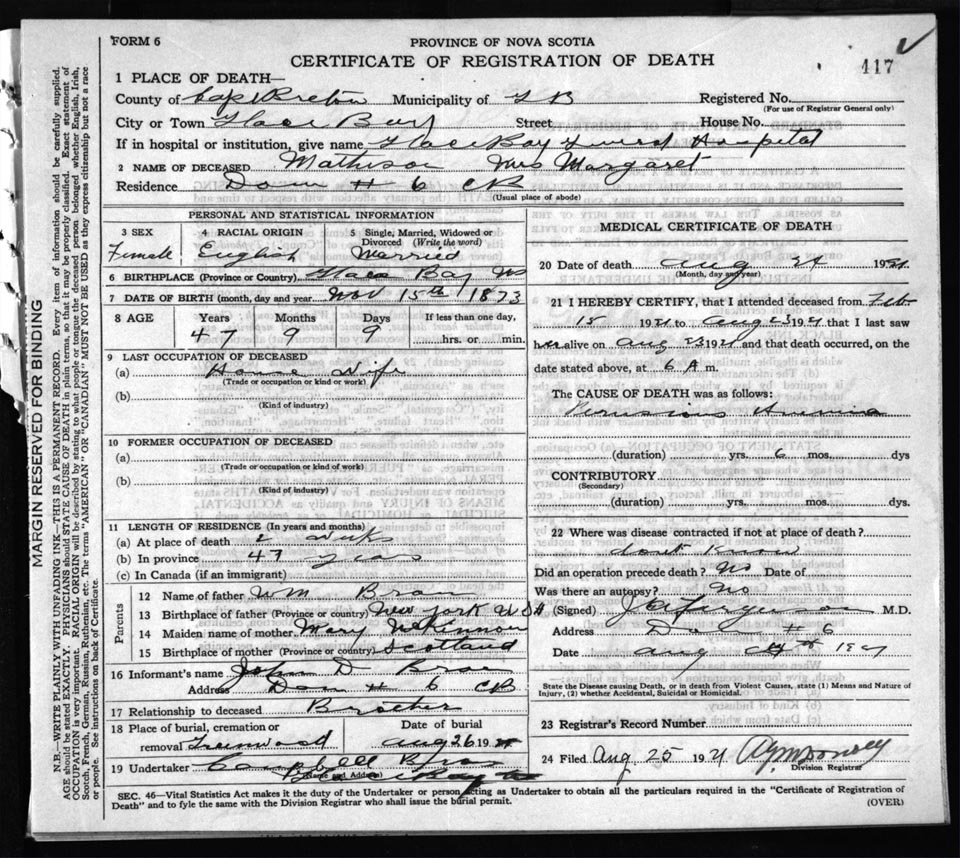 FORM 6
PROVINCE OF NOVA SCOTIA
CERTIFICATE OF REGISTRATION OF DEATH
417
1 PLACE OF DEATH—
County of Cape Breton Municipality of G B Registered No.
(For use of Registrar General only)
City or Town Glace Bay Street House No.
If in hospital or institution, give name Glace Bay General Hospital
2 NAME OF DECEASED Matheson Mrs Margaret
Residence Dom # 6 CB
(Usual place of abode)
PERSONAL AND STATISTICAL INFORMATION
3 SEX 4 RACIAL ORIGIN 5 Single, Married, Widowed or Divorced (Write the word)
Female English Married
6 BIRTHPLACE (Province or Country) Glace Bay NS
7 DATE OF BIRTH (month, day and year) Nov 15th 1873
8 AGE Years Months Days If less than one day,
47 9 9 hrs. or min.
9 LAST OCCUPATION OF DECEASED
(a) House Wife
(Trade or occupation or kind or work)
(b)
(Kind of industry)
10 FORMER OCCUPATION OF DECEASED
(a)
(Trade or occupation or kind of work)
(b)
(Kind of industry)
11 LENGTH OF RESIDENCE (In years and months)
(a) At place of death 2 Weeks
(b) In province 47 years
(c) In Canada (if an immigrant)
Parents
12 Name of father Wm
13 Birthplace of father (Province or country) New York USA
14 Maiden name of mother Mary McKinnon
15 Birthplace of mother (Province or country) Scotland
16 Informant's name John D
Address Dom # 6 CB
17 Relationship to deceased Brother
18 Place of burial, cremation or removal Greenwood Date of burial Aug 26 1921
19 Undertaker Campbell
(Name and Address)
MEDICAL CERTIFICATE OF DEATH
20 Date of death Aug 24 1921
(Month, day and year)
21 I HEREBY CERTIFY, that I attended deceased from Feb
15 1921 to Aug 23 1921 that I last saw
her alive on Aug 23 1921 and that death occurred, on the
date stated above, at 6 A m.
The CAUSE OF DEATH was as follows:
Pernicious Anemia
(duration) yrs. 6 mos. dys
CONTRIBUTORY
(Secondary)
(duration) yrs. mos. dys.
22 Where was disease contracted if not at place of death?
dont know
Did an operation precede death? No Date of
Was there an autopsy? No
(Signed) Ferguson M.D.
Address Dom # 6
Date Aug 1921
State the Disease causing Death, or in death from Violent Causes, state (1) Means and Nature of
Injury, (2) whether Accidental, Suicidal or Homicidal.
23 Registrar's Record Number
24 Filed Aug. 25 1921
Division Registrar
SEC. 46—Vital Statistics Act makes it the duty of the Undertaker or person acting as Undertaker to obtain all the particulars required in the "Certificate of Registration of
Death" and to fyle the same with the Division Registrar who shall issue the burial permit.
(OVER)
MARGIN RESERVED FOR BINDING
N.B.—WRITE PLAINLY WITH UNFADING INK—THIS IS A PERMANENT RECORD. Every item of information should be carefully supplied.
AGE should be stated EXACTLY. PHYSICIANS should STATE CAUSE OF DEATH in plain terms, so that it may be properly classified. Exact statement of
OCCUPATION is very important. RACIAL ORIGIN will be described by stating to what people or tongue the deceased person belonged, whether English, Irish,
Scotch, French, German, Russian, Ruthenian, etc. The terms "AMERICAN" OR "CANADIAN" MUST NOT BE USED as they express citizenship but not a race
or people. See instructions on back of Certificate.